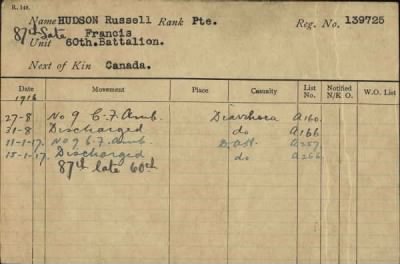 R. 149.
Name HUDSON Russell Rank Pte. Reg. No. 139725
87th late Francis
Unit 60th. Battalion.
Next of Kin Canada.
Date Movement Place Casualty List No. Notified N/K O. W.O. List
1916
27-8 No 9 C.F. Amb. Diarrhoea A160.
31-8 Discharged do A166
11-1-17. No 9 C.F. Amb. A257
15-1-17. Discharged do A266
87th late 60th